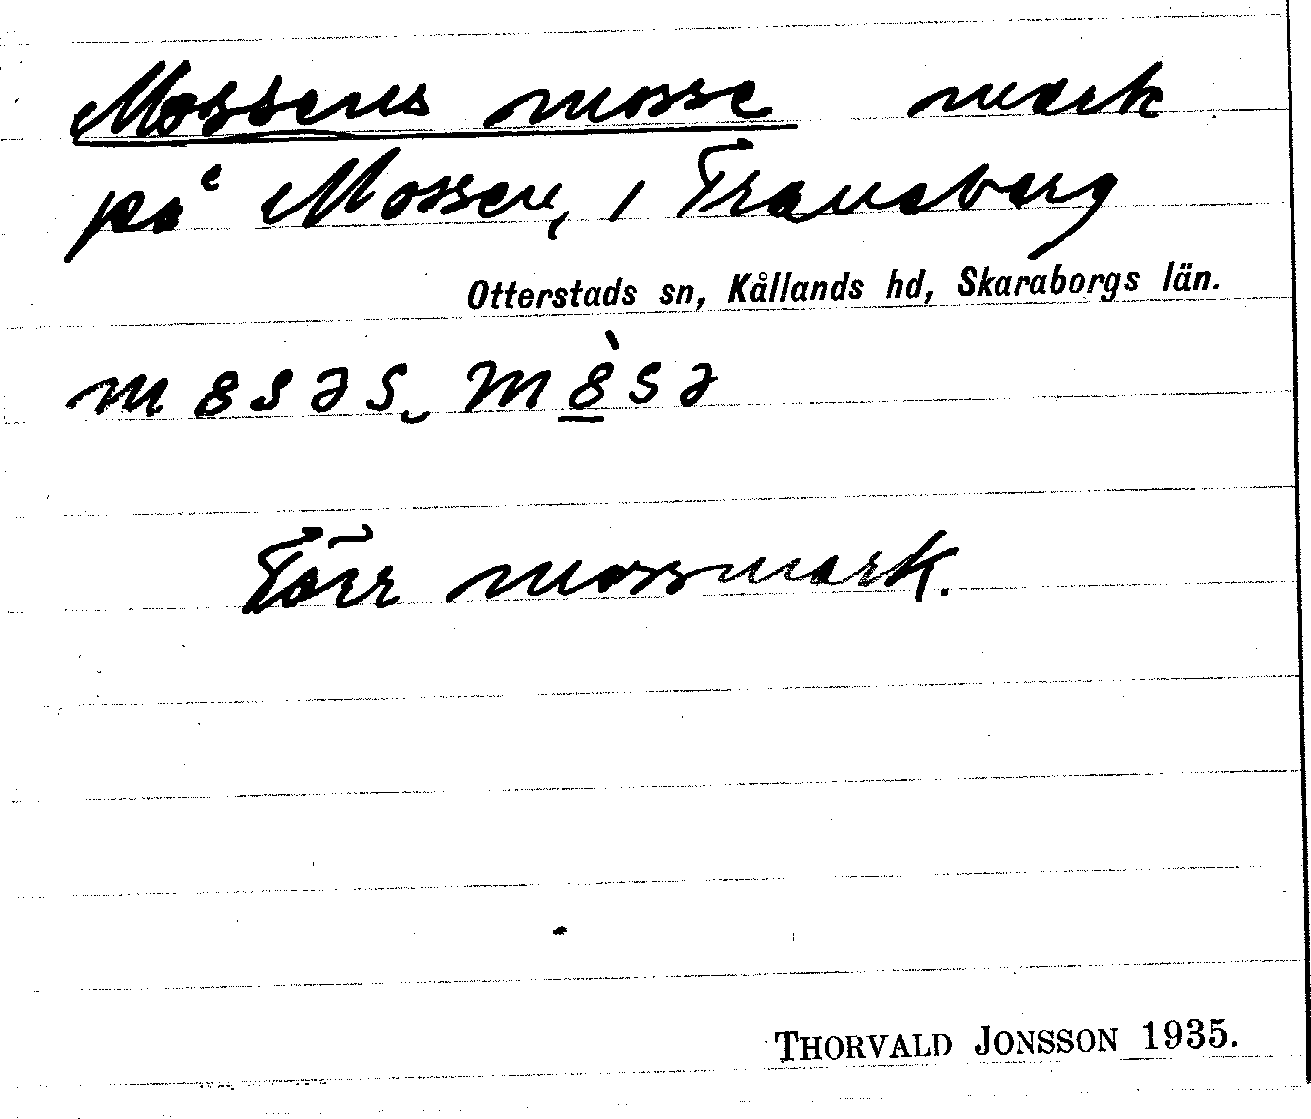 Mossens mosse mark
på Mossen, i Traneberg
Otterstads sn, Kållands hd, Skaraborgs län.
m8səs m8̀sə
Torr mossmark.
THORVALD JONSSON 1935.